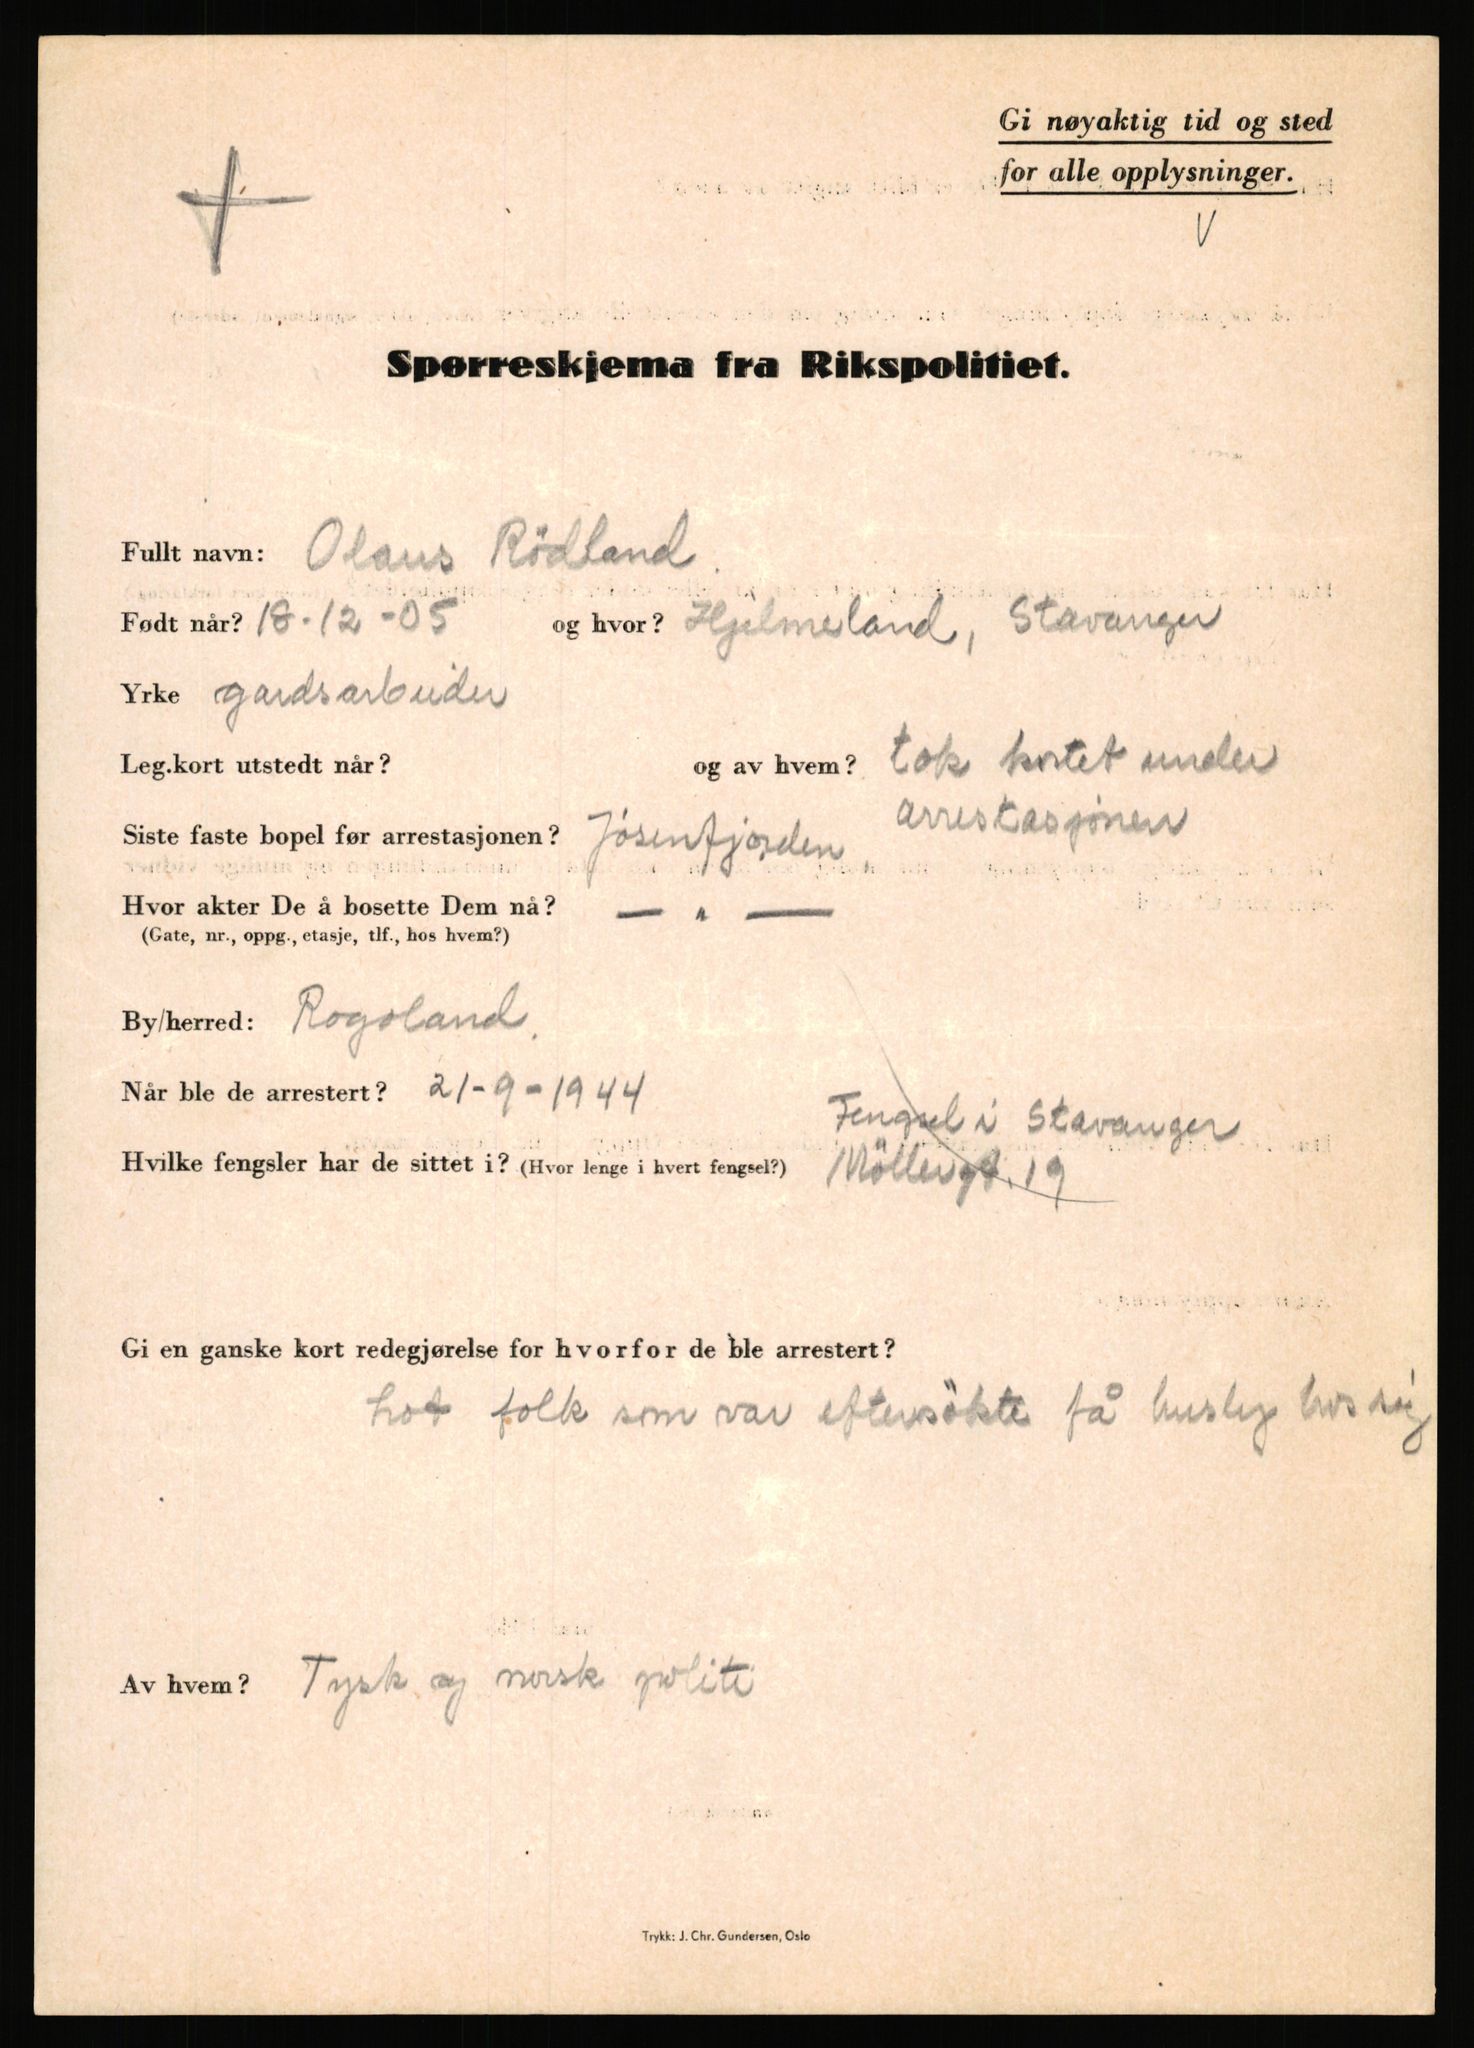 Gi nøyaktig tid og sted
for alle opplysninger.
V
Spørreskjema fra Rikspolitiet.
Fullt navn: Olaus Rödland.
Født når? 18.12-05 og hvor? Hjelmeland, Stavanger
Yrke gardsarbeider
Leg.kort utstedt når? og av hvem? tok kortet under
arrestasjonen
Siste faste bopel før arrestasjonen? Jösenfjorden
Hvor akter De å bosette Dem nå? — " —
(Gate, nr., oppg., etasje, tlf., hos hvem?)
By/herred: Rogoland.
Når ble de arrestert? 21-9-1944
Fengsel i Stavanger
Hvilke fengsler har de sittet i? (Hvor lenge i hvert fengsel?) Möllergt. 19
Gi en ganske kort redegjørelse for hvorfor de ble arrestert?
lot folk som var eftersökte få husly hos sig
Av hvem? Tysk og norsk politi
Trykk: J. Chr. Gundersen, Oslo